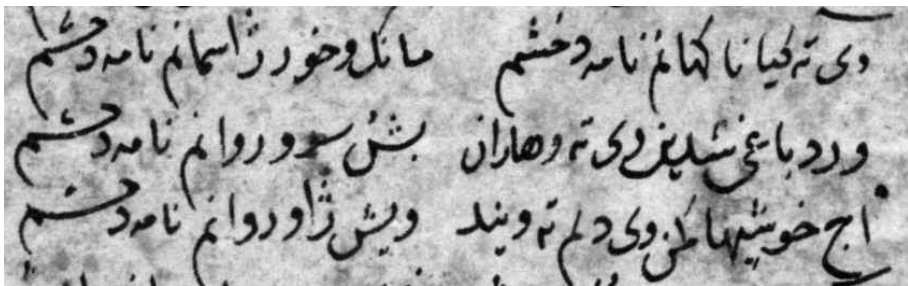 وی ته کیانا کهانم نامه دخشم مانک و خور ژاسمانم نامه دخشم
ورد باغی شیدین وی ته وهاران بشن سوور وانم نامه دخشم
اج خوشیها مکن وی دلم ته ویند ویش ژاو روانم نامه دخشم